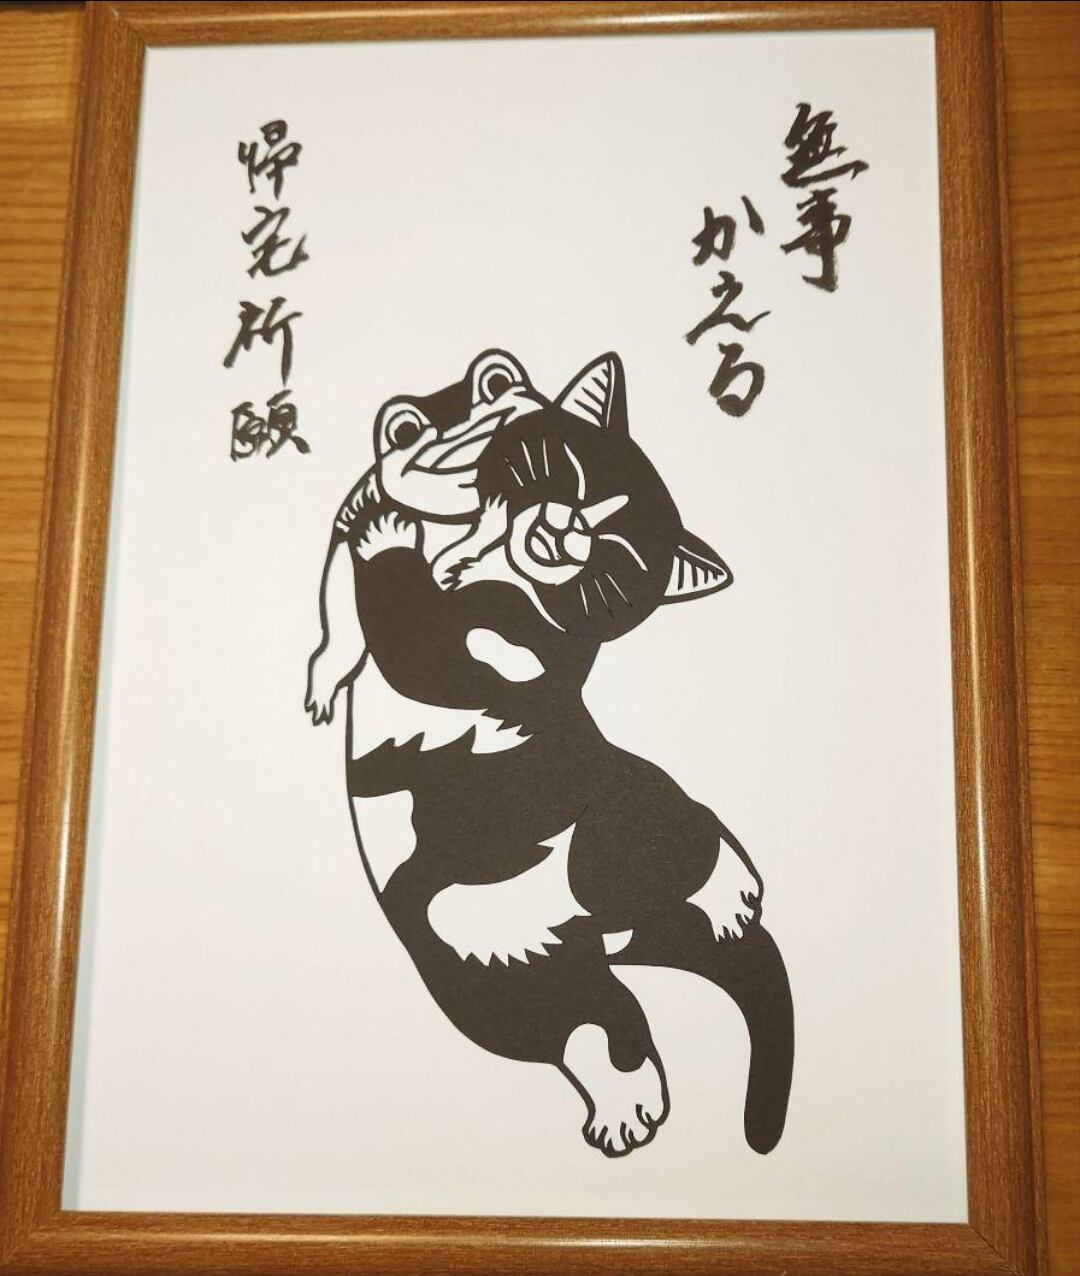 無事
かえる
帰宅祈願